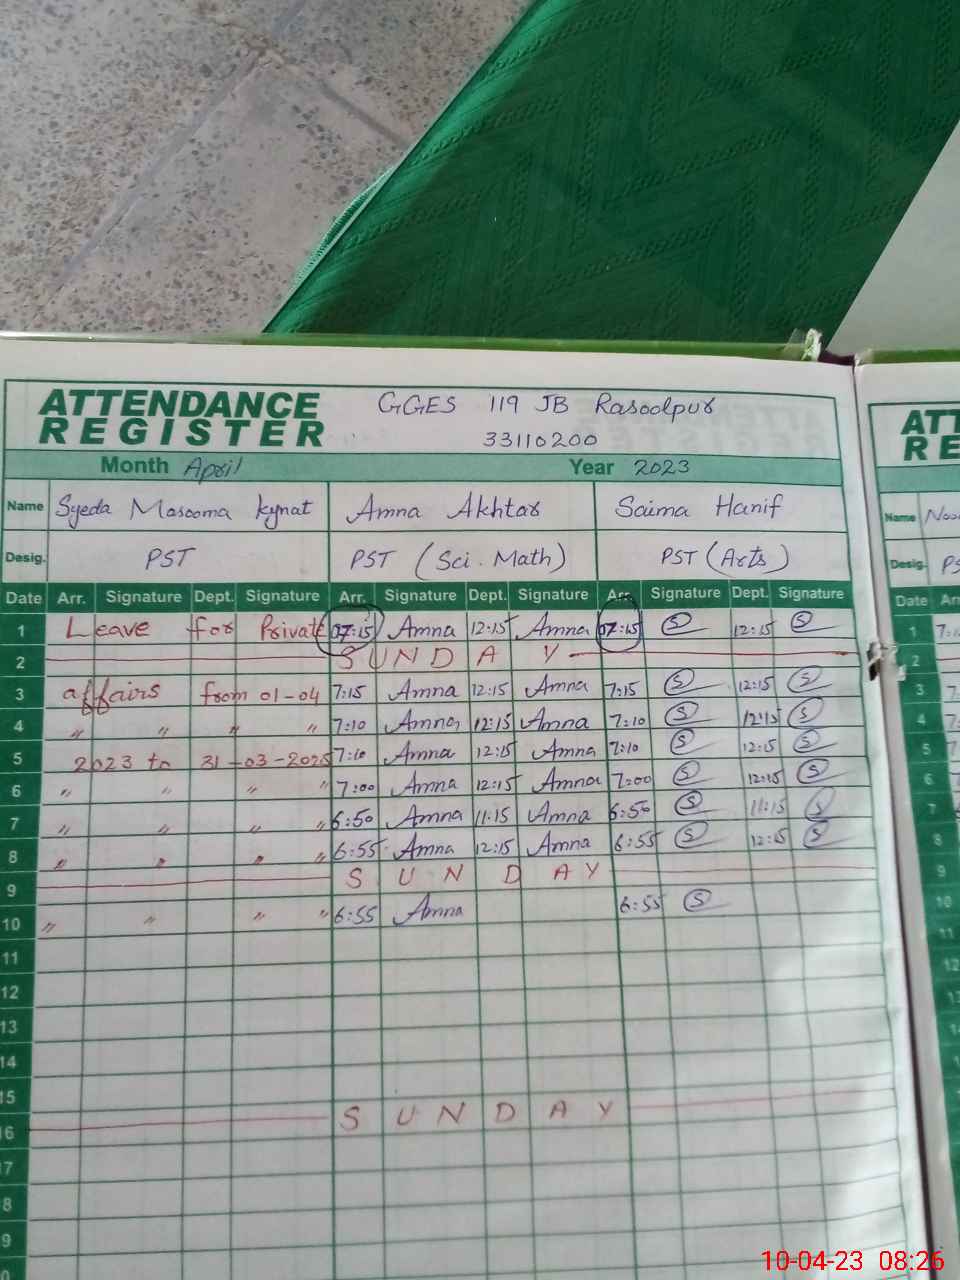 ATTENDANCE REGISTER GGES 119 JB Rasoolpur
33110200
Month April Year 2023
Name Syeda Masooma kynat Amna Akhtar Saima Hanif
Desig. PST PST (Sci. Math) PST (Arts)
Date Arr. Signature Dept. Signature Arr. Signature Dept. Signature Arr. Signature Dept. Signature
1 Leave for Private 07:15 Amna 12:15 Amna 07:15 S 12:15 S
2 SUNDAY
3 affairs from 01-04 7:15 Amna 12:15 Amna 7:15 S 12:15 S
4 " " " " 7:10 Amna 12:15 Amna 7:10 S 12:15 S
5 2023 to 31-03-2025 7:10 Amna 12:15 Amna 7:10 S 12:15 S
6 " " " " 7:00 Amna 12:15 Amna 7:00 S 12:15 S
7 " " " " 6:50 Amna 11:15 Amna 6:50 S 11:15 S
8 " " " " 6:55 Amna 12:15 Amna 6:55 S 12:15 S
9 SUNDAY
10 " " " " 6:55 Amna 6:55 S
11
12
13
14
15
16 SUNDAY
17
18
19
ATT
RE
Name
Desig. PS
Date Arr
1
2
3
4
5
6
7
8
9
10
11
12
10-04-23 08:26